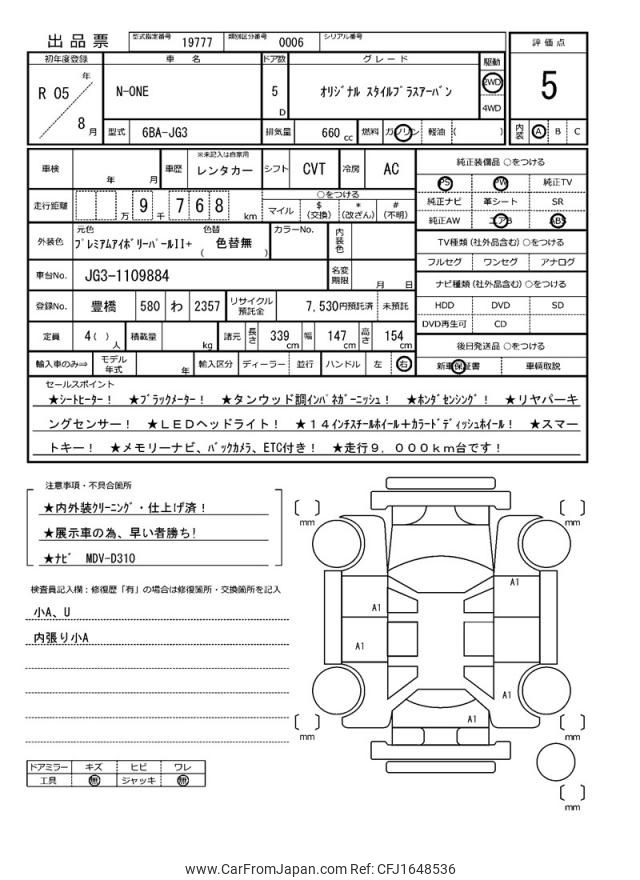 出品票 型式指定番号 19777 類別区分番号 0006 シリアル番号
初年度登録 車名 ドア数 グレード 駆動 評価点
R 05 年 8 月 N-ONE 5 D オリジナル スタイルプラスアーバン 2WD 4WD 5
型式 6BA-JG3 排気量 660 cc 燃料 ガソリン 軽油 ( ) 内装 A B C
車検 年 月 車歴 ※未記入は自家用 レンタカー シフト CVT 冷房 AC
走行距離 万 9 千 7 6 8 km ○をつける マイル $ (交換) * (改ざん) # (不明)
外装色 元色 プレミアムアイボリーパールII+ 色替 ( 色替無 ) カラーNo. 内装色
車台No. JG3-1109884 名変期限 月 日
登録No. 豊橋 580 わ 2357 リサイクル預託金 7,530円預託済 未預託
定員 4( ) 人 積載量 kg 諸元 長さ 339 cm 幅 147 cm 高さ 154 cm
輸入車のみ⇒ モデル年式 年 輸入区分 ディーラー 並行 ハンドル 左 右
純正装備品 ○をつける
PS PW 純正TV
純正ナビ 革シート SR
純正AW エアB ABS
TV種類 (社外品含む) ○をつける
フルセグ ワンセグ アナログ
ナビ種類 (社外品含む) ○をつける
HDD DVD SD
DVD再生可 CD
後日発送品 ○をつける
新車保証書 車輌取説
セールスポイント
★シートヒーター! ★ブラックメーター! ★タンウッド調インパネガーニッシュ! ★ホンダセンシング! ★リヤパーキ
ングセンサー! ★LEDヘッドライト! ★14インチスチールホイール+カラードディッシュホイール! ★スマー
トキー! ★メモリーナビ、バックカメラ、ETC付き! ★走行9,000km台です!
注意事項・不具合箇所
★内外装クリーニング・仕上げ済!
★展示車の為、早い者勝ち!
★ナビ MDV-D310
検査員記入欄:修復歴「有」の場合は修復箇所・交換箇所を記入
小A、U
内張り小A
ドアミラー キズ ヒビ ワレ
工具 無 ジャッキ 無
mm mm
A1
A1
A1
A1
A1
mm mm
mm
www.CarFromJapan.com Ref: CFJ1648536